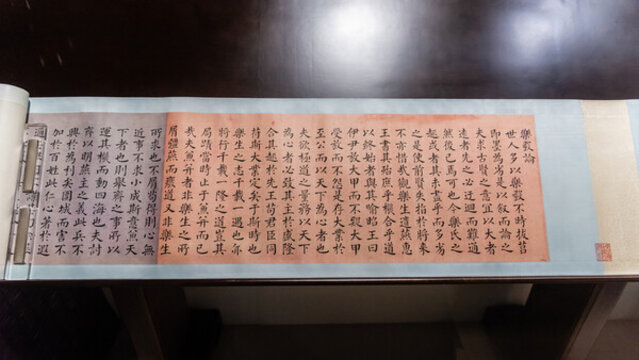 樂毅論
世人多以樂毅不時拔莒
即墨為劣是以叙而論之
夫求古賢之意宜以大者
遠者先之必迂迴而難通
然後已焉可也今樂氏之
趣或者其未盡乎而多劣
之是使前賢失指於將來
不亦惜哉觀樂生遺燕惠
王書其殆庶乎機合乎道
以終始者與其喻昭王曰
伊尹放大甲而不疑大甲
受放而不怨是存大業於
至公而以天下為心者也
夫欲極道之量務以天下
為心者必致其主於盛隆
合其趣於先王苟君臣同
符斯大業定矣于斯時也
樂生之志千載一遇也亦
將行千載一隆之道豈其
局蹟當時止於兼并而已
哉夫兼并者非樂生之所
屑彊燕而廢道又非樂生之
所求也不屑苟得則心無
近事不求小成斯意兼天
下者也則舉齊之事所以
運其機而動四海也夫討
齊以明燕主之義此兵不
興於為利矣圍城而害不
加於百姓此仁心著於遐
邇